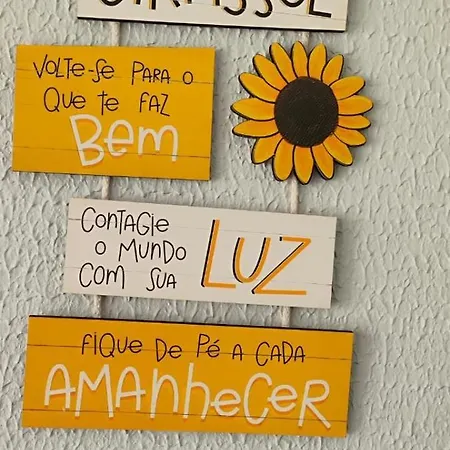 GIRASSOL
VOLTE-SE PARA O
QUE TE FAZ
BEM
CONTAGIE
O MUNDO
COM SUA
LUZ
FIQUE DE PÉ A CADA
AMANHECER